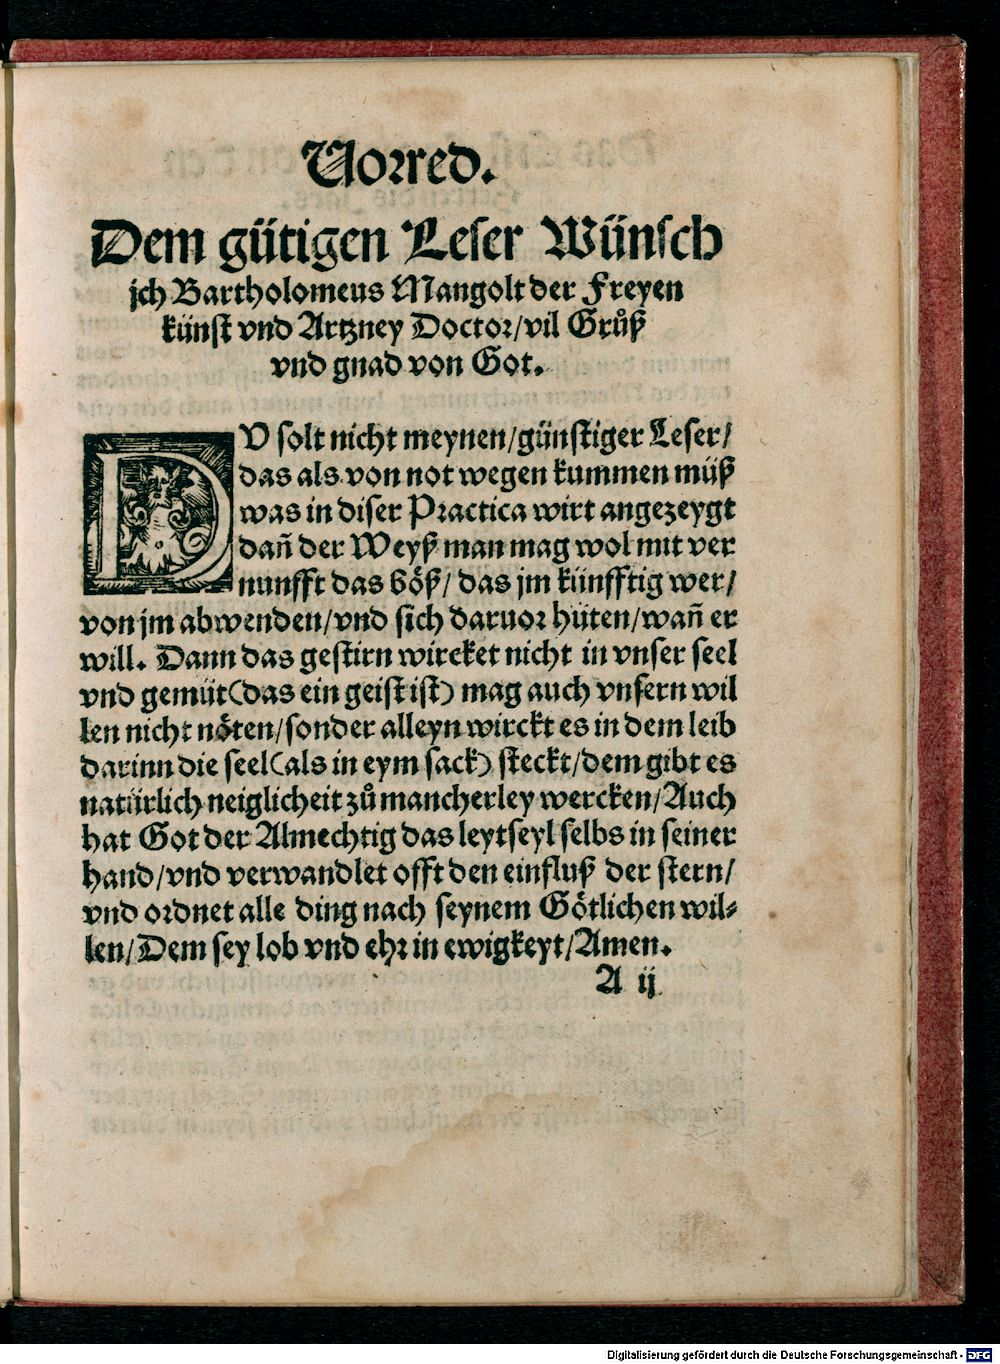 Vorred.
Dem gütigen Leser Wünsch
jch Bartholomeus Mangolt der Freyen
künst vnd Artzney Doctor/vil Grůß
vnd gnad von Got.
DV solt nicht meynen/günstiger Leser/
das als von not wegen kummen müß
was in diser Practica wirt angezeygt
dañ der Weyß man mag wol mit ver
nunfft das böß/ das jm künfftig wer/
von jm abwenden/vnd sich daruor hüten/wañ er
will. Dann das gestirn wircket nicht in vnser seel
vnd gemüt(das ein geist ist) mag auch vnsern wil
len nicht nöten/sonder alleyn wirckt es in dem leib
darinn die seel(als in eym sack) steckt/dem gibt es
natürlich neiglicheit zů mancherley wercken/Auch
hat Got der Almechtig das leytseyl selbs in seiner
hand/vnd verwandlet offt den einfluß der stern/
vnd ordnet alle ding nach seynem Götlichen wil⸗
len/Dem sey lob vnd ehr in ewigkeyt/Amen.
A ij
Digitalisierung gefördert durch die Deutsche Forschungsgemeinschaft - DFG